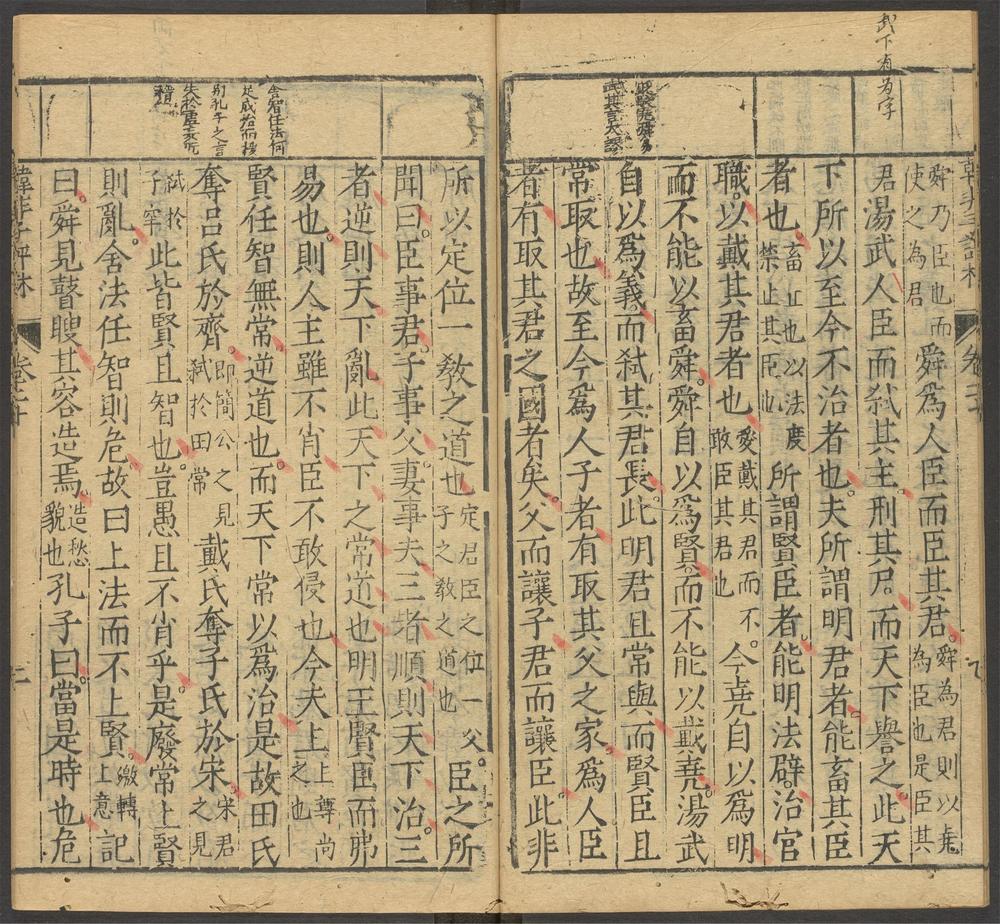 武下有為字
舜乃臣也而使之為君舜為人臣而臣其君舜為君則以堯為臣也是臣其
君湯武人臣而弑其主刑其尸而天下譽之此天
下所以至今不治者也夫所謂明君者能畜其臣
者也畜止也以法度禁止其臣也所謂賢臣者能明法辟治官
職以戴其君者也愛戴其君而不敢臣其君也今堯自以為明
而不能以畜舜舜自以為賢而不能以戴堯湯武
自以為義而弑其君長此明君且常與而賢臣且
常取也故至今為人子者有取其父之家為人臣
者有取其君之國者矣父而讓子君而讓臣此非
所以定位一教之道也定君臣之位一父子之教之道也臣之所
聞曰臣事君子事父妻事夫三者順則天下治三
者逆則天下亂此天下之常道也明王賢臣而弗
易也則人主雖不肖臣不敢侵也今夫上上尊尚之也
賢任智無常逆道也而天下常以為治是故田氏
奪呂氏於齊即簡公之見弑於田常戴氏奪子氏於宋宋君之見
弑於子罕此皆賢且智也豈愚且不肖乎是廢常上賢
則亂舍法任智則危故曰上法而不上賢繳轉上意記
曰舜見瞽瞍其容造焉造愁貌也孔子曰當是時也危
舍智任法何
足成治而援
別孔子之言
韓非子評林